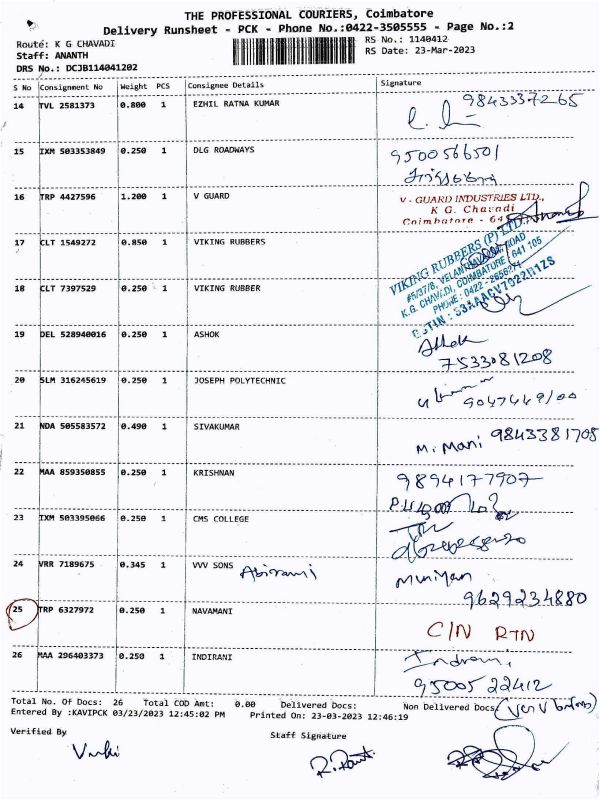 THE PROFESSIONAL COURIERS, Coimbatore
Delivery Runsheet - PCK - Phone No.:0422-3505555 - Page No.:2
Route: K G CHAVADI
Staff: ANANTH
DRS No.: DCJB114041202
RS No.: 1140412
RS Date: 23-Mar-2023
S No Consignment No Weight PCS Consignee Details Signature
14 TVL 2581373 0.800 1 EZHIL RATNA KUMAR 9843337265
15 IXM 503353849 0.250 1 DLG ROADWAYS 9500566501
16 TRP 4427596 1.200 1 V GUARD
V - GUARD INDUSTRIES LTD.,
K G. Chavadi
Coimbatore - 64
17 CLT 1549272 0.850 1 VIKING RUBBERS
VIKING RUBBERS (P) LTD.
K.G. CHAVADI, COIMBATORE - 641 105
18 CLT 7397529 0.250 1 VIKING RUBBER
19 DEL 528940016 0.250 1 ASHOK Ashok
7533081208
20 SLM 316245619 0.250 1 JOSEPH POLYTECHNIC
21 NDA 505583572 0.490 1 SIVAKUMAR M. Mani 9843381708
22 MAA 859350855 0.250 1 KRISHNAN 9894177907
23 IXM 503395066 0.250 1 CMS COLLEGE
24 VRR 7189675 0.345 1 VVV SONS Abirami Muniyan
9629234880
25 TRP 6327972 0.250 1 NAVAMANI C/N RTN
26 MAA 296403373 0.250 1 INDIRANI Indrani
9500522412
Total No. Of Docs: 26 Total COD Amt: 0.00 Delivered Docs: Non Delivered Docs:
Entered By :KAVIPCK 03/23/2023 12:45:02 PM Printed On: 23-03-2023 12:46:19
Verified By Staff Signature